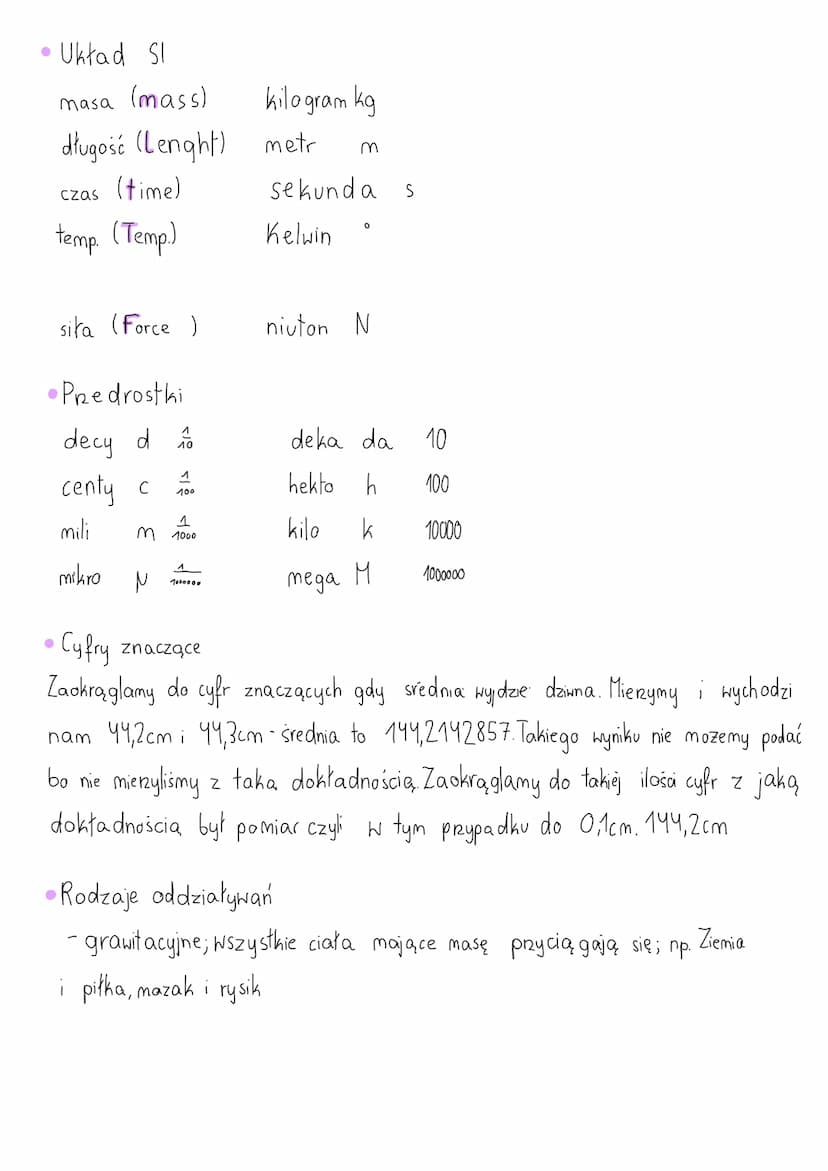 • Układ SI
masa (mass) kilogram kg
długość (Lenght) metr m
czas (time) sekunda s
temp. (Temp.) Kelwin °
siła (Force ) niuton N
• Przedrostki
decy d 1/10 deka da 10
centy c 1/100 hekto h 100
mili m 1/1000 kilo k 10000
mikro μ 1/1000000 mega M 1000000
• Cyfry znaczące
Zaokrąglamy do cyfr znaczących gdy średnia wyjdzie dziwna. Mierzymy i wychodzi
nam 44,2cm i 44,3cm - średnia to 144,2142857. Takiego wyniku nie możemy podać
bo nie mierzyliśmy z taka dokładnością. Zaokrąglamy do takiej ilości cyfr z jaką
dokładnością był pomiar czyli w tym przypadku do 0,1cm. 144,2cm
• Rodzaje oddziaływań
- grawitacyjne; wszystkie ciała mające masę przyciągają się; np. Ziemia
i piłka, mazak i rysik